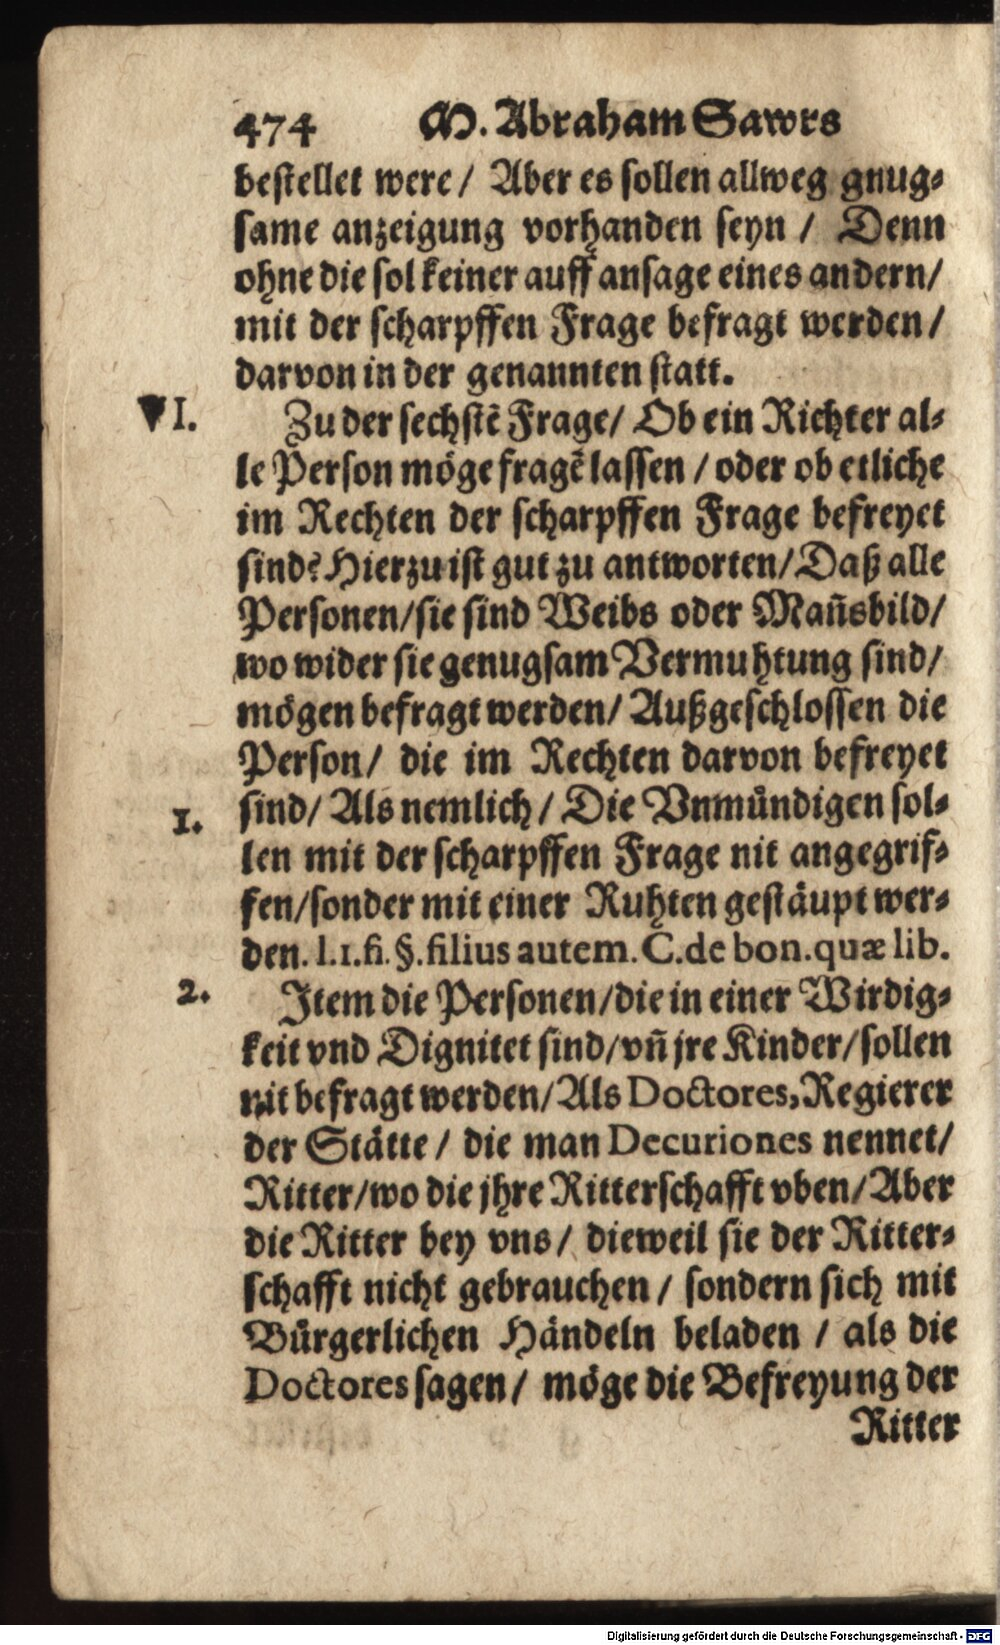 474 M. Abraham Sawrs
bestellet were / Aber es sollen allweg gnug⸗
same anzeigung vorhanden seyn / Denn
ohne die sol keiner auff ansage eines andern /
mit der scharpffen Frage befragt werden /
darvon in der genannten statt.
VI. Zu der sechstẽ Frage / Ob ein Richter al⸗
le Person möge fragẽ lassen / oder ob etliche
im Rechten der scharpffen Frage befreyet
sind? Hierzu ist gut zu antworten / Daß alle
Personen / sie sind Weibs oder Mañsbild /
wo wider sie genugsam Vermuhtung sind /
mögen befragt werden / Außgeschlossen die
Person / die im Rechten darvon befreyet
1. sind / Als nemlich / Die Vnmündigen sol⸗
len mit der scharpffen Frage nit angegrif⸗
fen / sonder mit einer Ruhten gestäupt wer⸗
den. l.1.fi.§.filius autem. C. de bon. quæ lib.
2. Item die Personen / die in einer Wirdig⸗
keit vnd Dignitet sind / vñ jre Kinder / sollen
nit befragt werden / Als Doctores, Regierer
der Stätte / die man Decuriones nennet /
Ritter / wo die jhre Ritterschafft vben / Aber
die Ritter bey vns / dieweil sie der Ritter⸗
schafft nicht gebrauchen / sondern sich mit
Bürgerlichen Händeln beladen / als die
Doctores sagen / möge die Befreyung der
Ritter
Digitalisierung gefördert durch die Deutsche Forschungsgemeinschaft - DFG